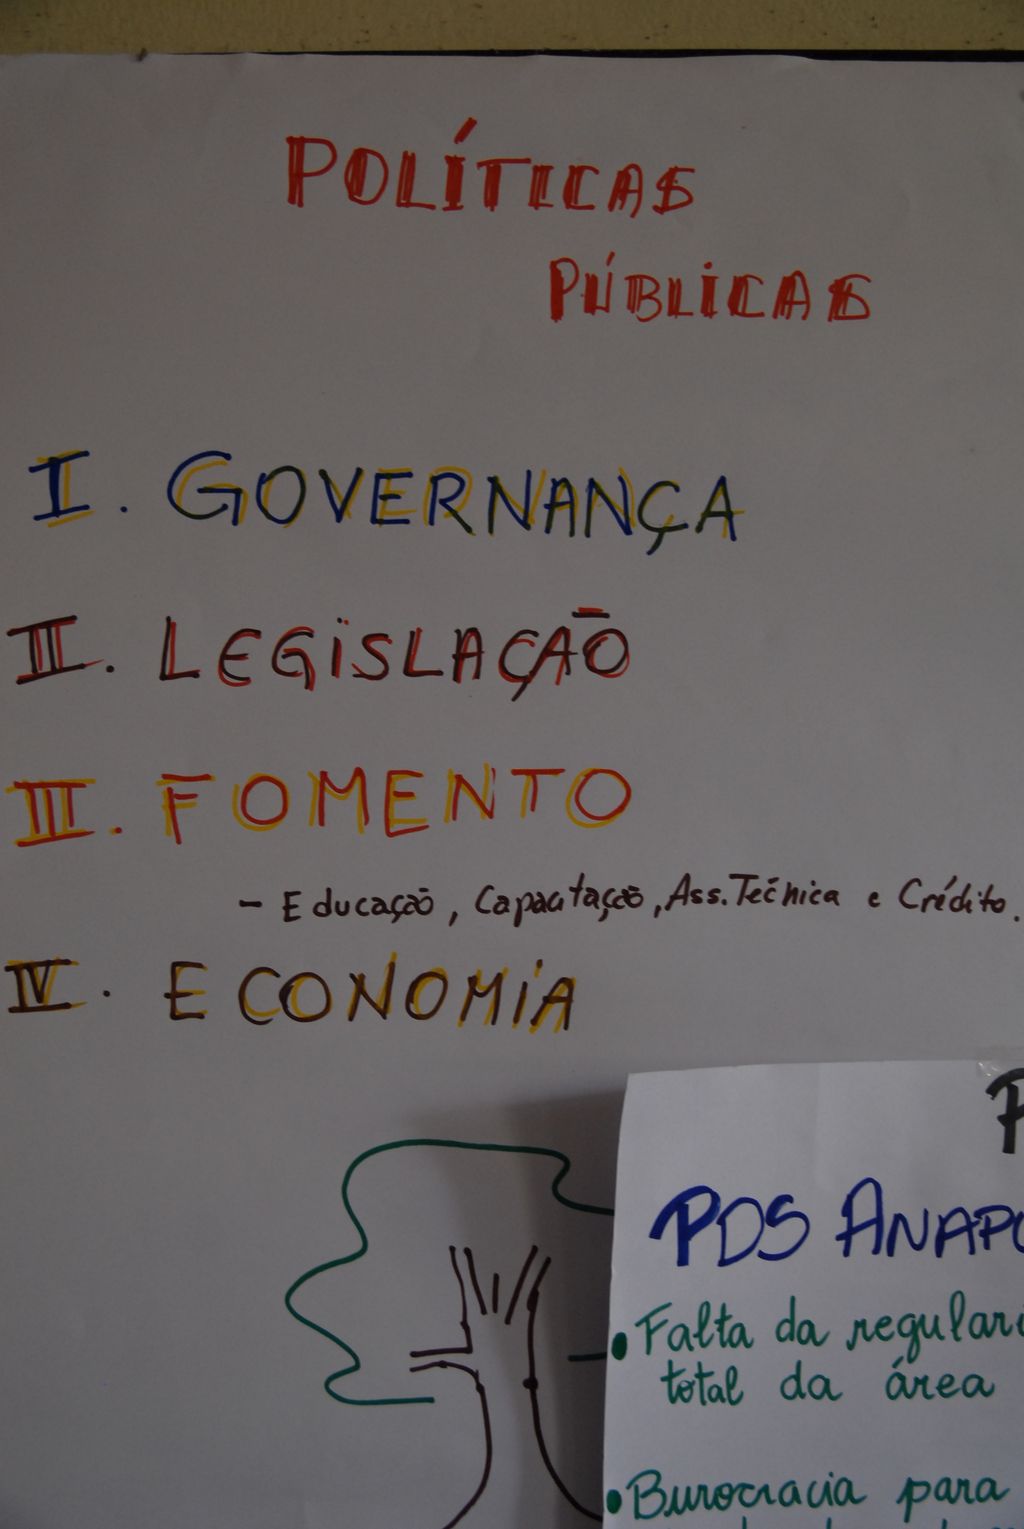 POLÍTICAS
PÚBLICAS
I. GOVERNANÇA
II. LEGISLAÇÃO
III. FOMENTO
- Educação, Capacitação, Ass. Técnica e Crédito.
IV. ECONOMIA
PDS ANAPO
• Falta da regular
total da área
• Burocracia para